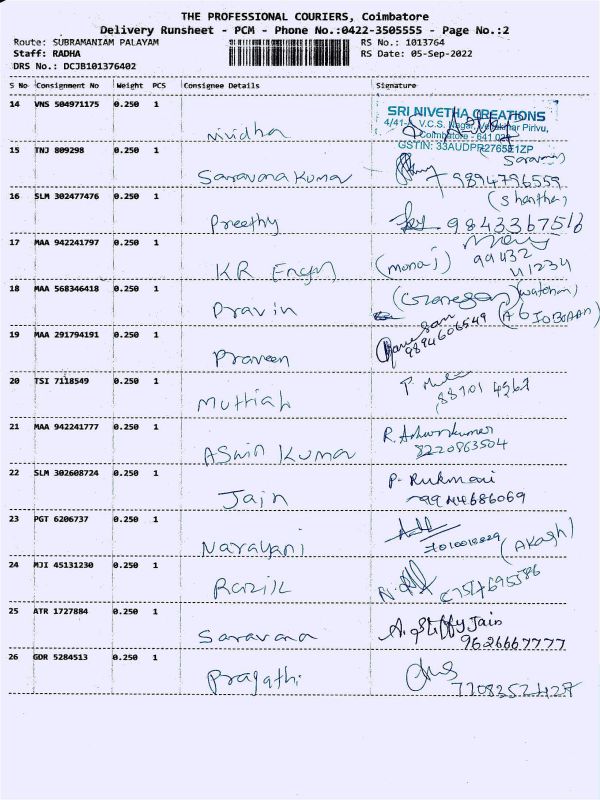 THE PROFESSIONAL COURIERS, Coimbatore
Delivery Runsheet - PCM - Phone No.:0422-3505555 - Page No.:2
Route: SUBRAMANIAM PALAYAM RS No.: 1013764
Staff: RADHA RS Date: 05-Sep-2022
DRS No.: DCJB101376402
S No Consignment No Weight PCS Consignee Details Signature
14 VNS 504971175 0.250 1 Nividha
SRI NIVETHA CREATIONS
4/41- V.C.S. Nagar, Pirivu,
Coimbatore - 641
GSTIN: 33AUDPR2765E1ZP
15 TNJ 809298 0.250 1 Saravana Kumar 9894796559
16 SLM 302477476 0.250 1 Preethy (Shantha) 9843367516
17 MAA 942241797 0.250 1 KR Engg (manoj) 99432 41234
18 MAA 568346418 0.250 1 Pravin (watchman)
19 MAA 291794191 0.250 1 Praveen 9894606549
20 TSI 7118549 0.250 1 Muthiah
21 MAA 942241777 0.250 1 Aswin Kumar R. Ashwinkumar 8220863504
22 SLM 302608724 0.250 1 Jain P. Rukmani 9944686069
23 PGT 6206737 0.250 1 Narayani (Akash)
24 MJI 45131230 0.250 1 Razik
25 ATR 1727884 0.250 1 Saravana A. Steffy Jain 9626667777
26 GDR 5284513 0.250 1 Pragathi 7708352427